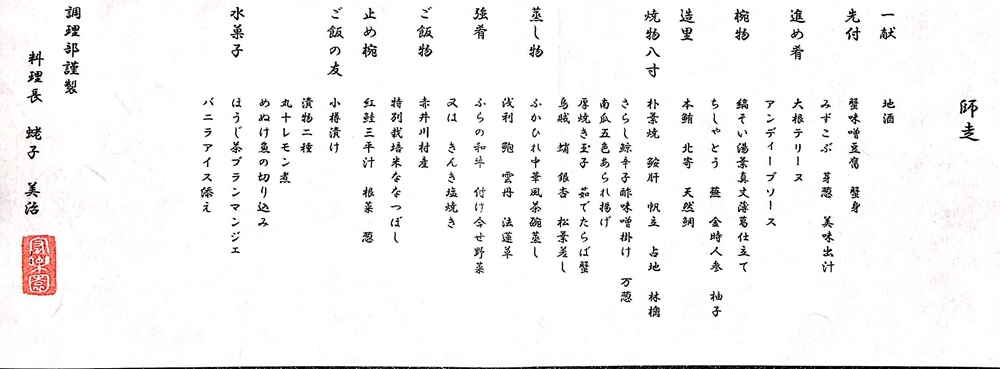 師走
一献　地酒
先付　蟹味噌豆腐　蟹身
みずこぶ　芽葱　美味出汁
進め肴　大根テリーヌ
アンディーブソース
椀物　縞そい湯葉真丈薄葛仕立て
ちしゃとう　蕪　金時人参　柚子
造里　本鮪　北寄　天然鯛
焼物八寸　朴葉焼　鮟肝　帆立　占地　林檎
さらし鯨辛子酢味噌掛け　万葱
南瓜五色あられ揚げ
厚焼き玉子　茹でたらば蟹
烏賊　蛸　銀杏　松葉差し
蒸し物　ふかひれ中華風茶碗蒸し
浅利　鮑　雲丹　法蓮草
強肴　ふらの和牛　付け合せ野菜
又は　きんき塩焼き
ご飯物　赤井川村産
特別栽培米ななつぼし
止め椀　紅鮭三平汁　根菜　葱
ご飯の友　小樽漬け
漬物二種
丸十レモン煮
めぬけ魚の切り込み
水菓子　ほうじ茶ブランマンジェ
バニラアイス添え
調理部謹製
料理長　蛯子　美治